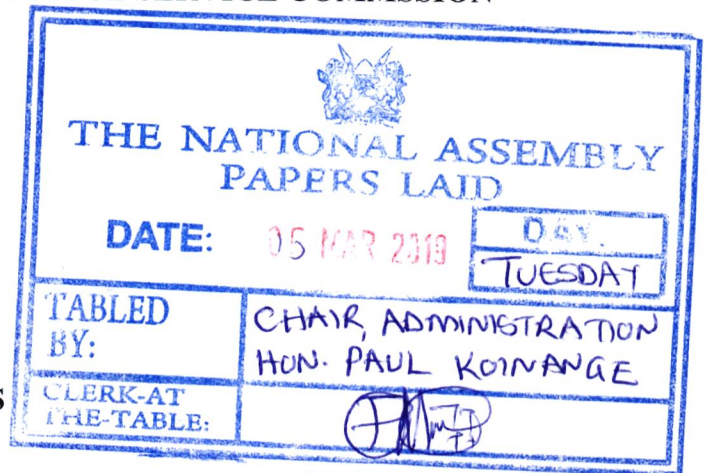 SERVICE COMMISSION
THE NATIONAL ASSEMBLY
PAPERS LAID
DATE: 05 MAR 2019
DAY.
TUESDAY
TABLED
BY:
CHAIR, ADMINISTRATION
HON. PAUL KOINANGE
CLERK-AT
THE-TABLE:
S